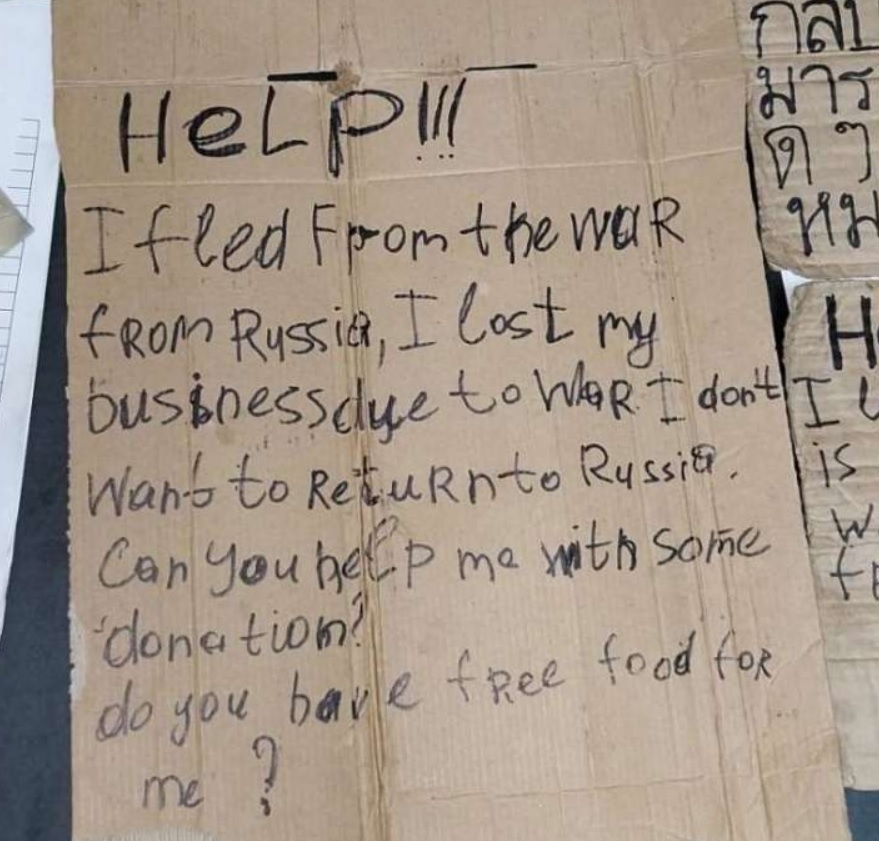 HeLP!!!
I fled From the waR
fROM Russia, I lost my
business due to WaR I don't
Want to RetuRn to Russia.
Can you help me with some
donation?
do you have fRee food foR
me ?
กลับ
มาร
ดๆ
หม
H
I l
is
w